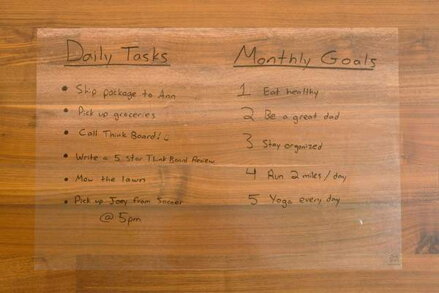 Daily Tasks
• Ship package to Ann
• Pick up groceries
• Call Think Board!
• Write a 5 star Think Board Review
• Mow the lawn
• Pick up Joey from Soccer
@ 5pm
Monthly Goals
1 Eat healthy
2 Be a great dad
3 Stay organized
4 Run 2 miles / day
5 Yoga every day